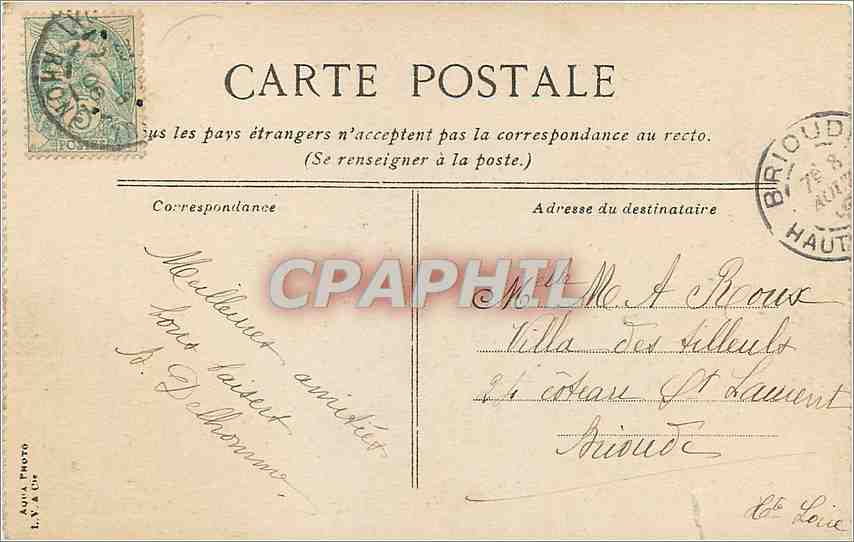 CARTE POSTALE
us les pays étrangers n'acceptent pas la correspondance au recto.
(Se renseigner à la poste.)
Correspondance
Adresse du destinataire
Meilleures amitiés
bons baisers
A. Delhomme
Melle M. A Roux
Villa des tilleuls
côteau St Laurent
Brioude
Hte Loire
BRIOUD
7E 8
AOUT
HAUT
RHONE
POSTES
CPAPHIL
AQUA PHOTO
L. V. & Cie